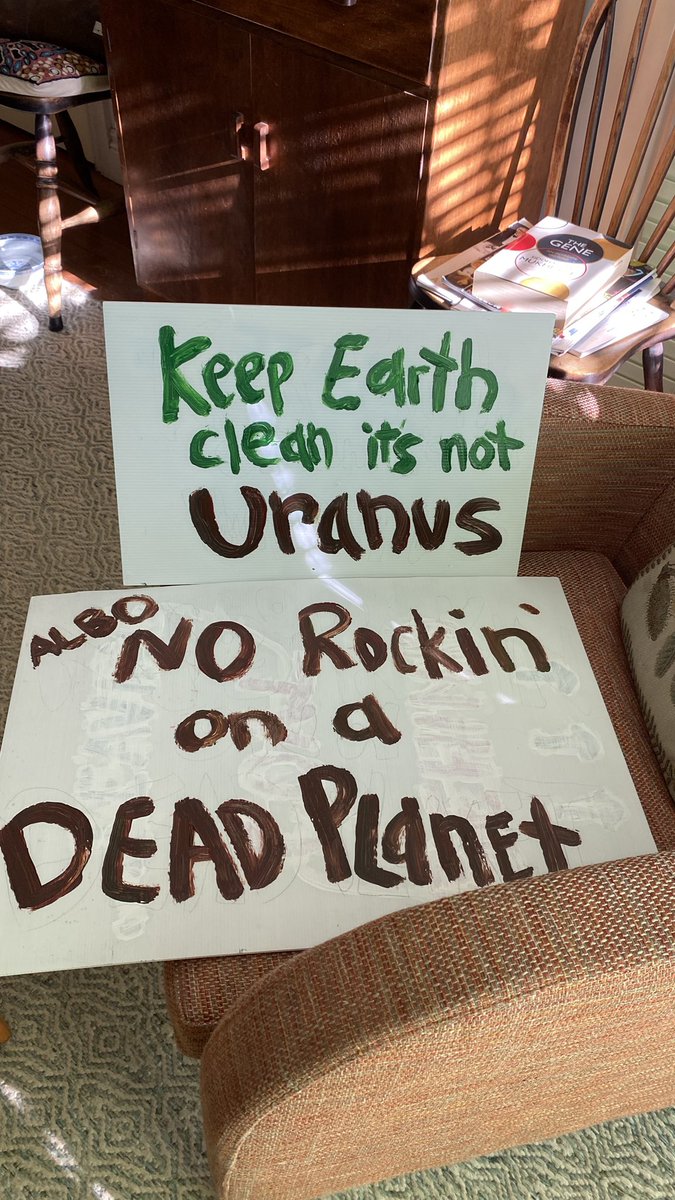 THE
GENE
Keep Earth
clean it's not
Uranus
ALBO NO Rockin'
on a
DEAD Planet